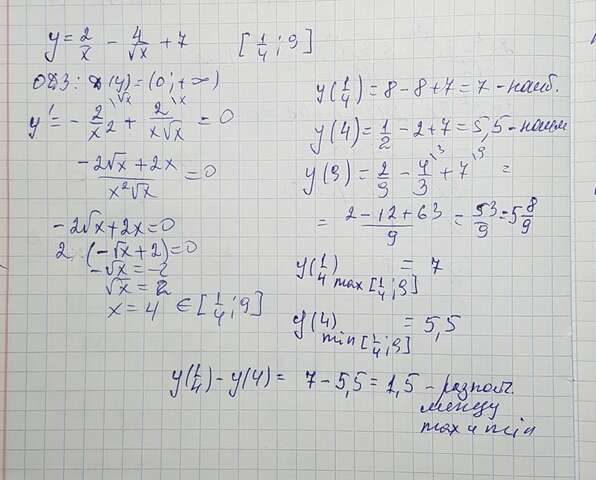 y = 2/x - 4/√x + 7 [1/4; 9]
ОДЗ: D(y) = (0; +∞)
y' = - 2/x² \√x + 2/(x√x) \x = 0
(-2√x + 2x)/(x²√x) = 0
-2√x + 2x = 0
2 · (-√x + 2) = 0
-√x = -2
√x = 2
x = 4 ∈ [1/4; 9]
y(1/4) = 8 - 8 + 7 = 7 - наиб.
y(4) = 1/2 - 2 + 7 = 5,5 - наим
y(9) = 2/9 - 4/3 \3 + 7 \9 =
= (2 - 12 + 63)/9 = 53/9 = 5 8/9
y(1/4) max [1/4; 9] = 7
y(4) min [1/4; 9] = 5,5
y(1/4) - y(4) = 7 - 5,5 = 1,5 -
между
max и min